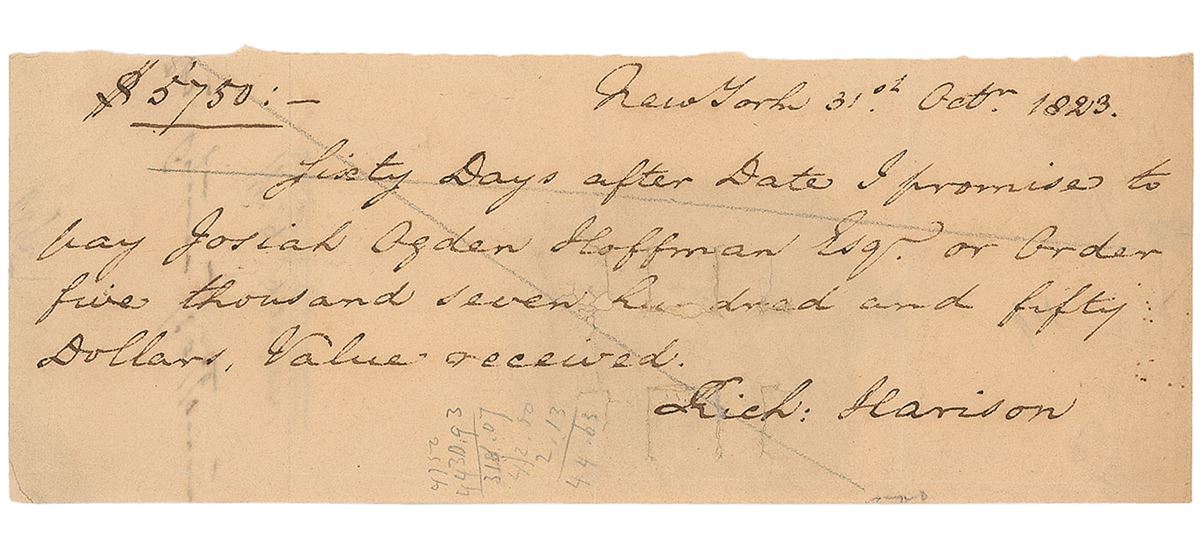 $ 5750:–
New York 31st. Octr. 1823.
Sixty Days after Date I promise to
pay Josiah Ogden Hoffman Esqr. or Order
five thousand seven hundred and fifty
Dollars, Value received.
Rich: Harison
4430.93
318.07
2.13
44.63